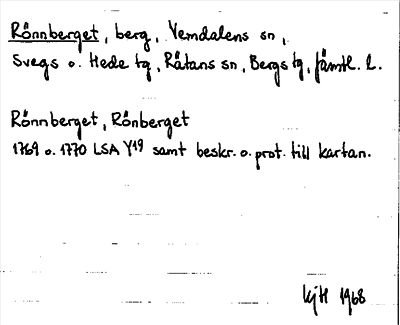 Rönnberget, berg, Vemdalens sn,
Svegs o. Hede tg, Råtans sn, Bergs tg, Jämtl. l.
Rönnberget, Rönberget
1769 o. 1770 LSA Y19 samt beskr. o. prot. till kartan.
KjH 1968